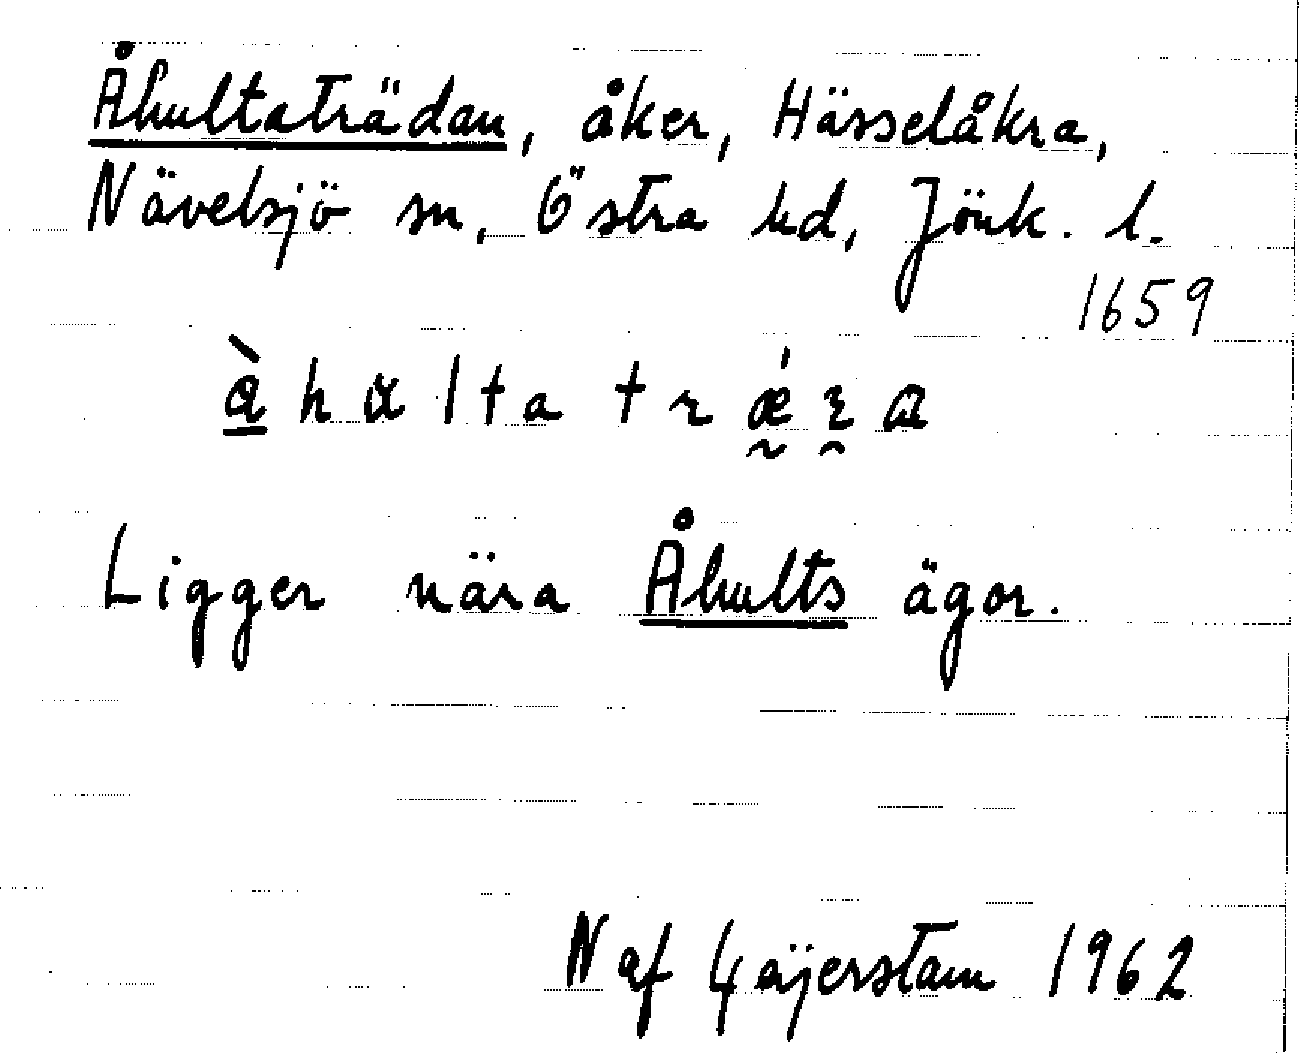 Åhultaträdan, åker, Hässelåkra,
Nävelsjö sn, Östra hd, Jönk. l.
1659
Ligger nära Åhults ägor.
N af Geijerstam 1962